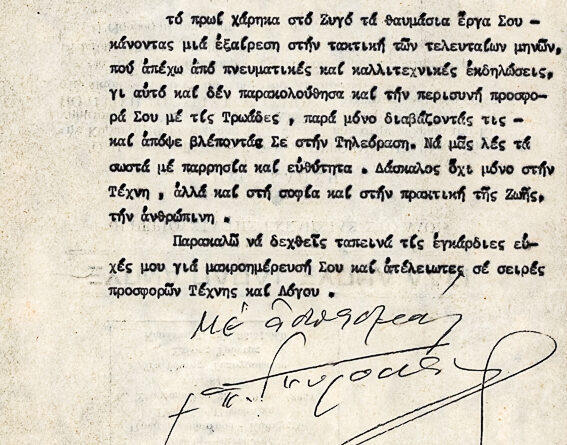 τό πρωί χάρηκα στό Ζυγό τά θαυμάσια ἔργα Σου -
κάνοντας μιά ἐξαίρεση στήν τακτική τῶν τελευταίων μηνῶν,
πού ἀπέχω ἀπό πνευματικές καί καλλιτεχνικές ἐκδηλώσεις,
γι αὐτό καί δέν παρακολούθησα καί τήν περισυνή προσφο-
ρά Σου μέ τίς Τρωάδες , παρά μόνο διαβάζοντάς τις -
καί ἀπόψε βλέποντάς Σε στήν Τηλεόραση. Νά μᾶς λές τά
σωστά μέ παρρησία καί εὐθύτητα . Δάσκαλος ὄχι μόνο στήν
Τέχνη , ἀλλά καί στή σοφία καί στήν πρακτική τῆς Ζωῆς,
τήν ἀνθρώπινη .
Παρακαλῶ νά δεχθεῖς ταπεινά τίς ἐγκάρδιες εὐ-
χές μου γιά μακροημέρευσή Σου καί ἀτέλειωτες σέ σειρές
προσφορῶν Τέχνης καί Λόγου .
Μέ